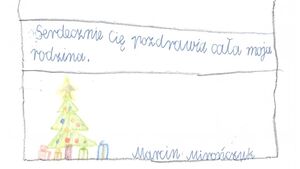 Serdecznie Cię pozdrawia cała moja
rodzina.
Marcin Mirończuk